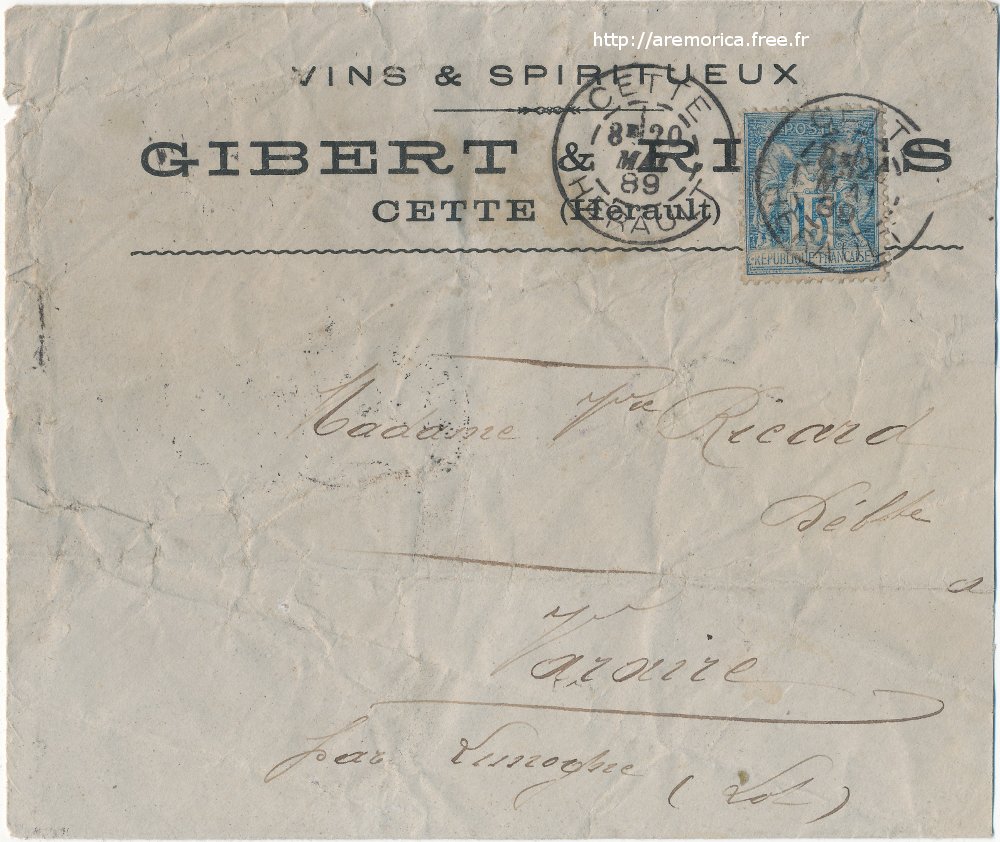 http://aremorica.free.fr
VINS & SPIRITUEUX
GIBERT & RI ES
CETTE (Hérault)
CETTE
8E 20
MAI
89
HERAULT
POSTES
15
REPUBLIQUE FRANÇAISE
CETTE
MAI
89
Madame Vve Ricard
Débte
a
Varaire
par Limogne
(Lot)